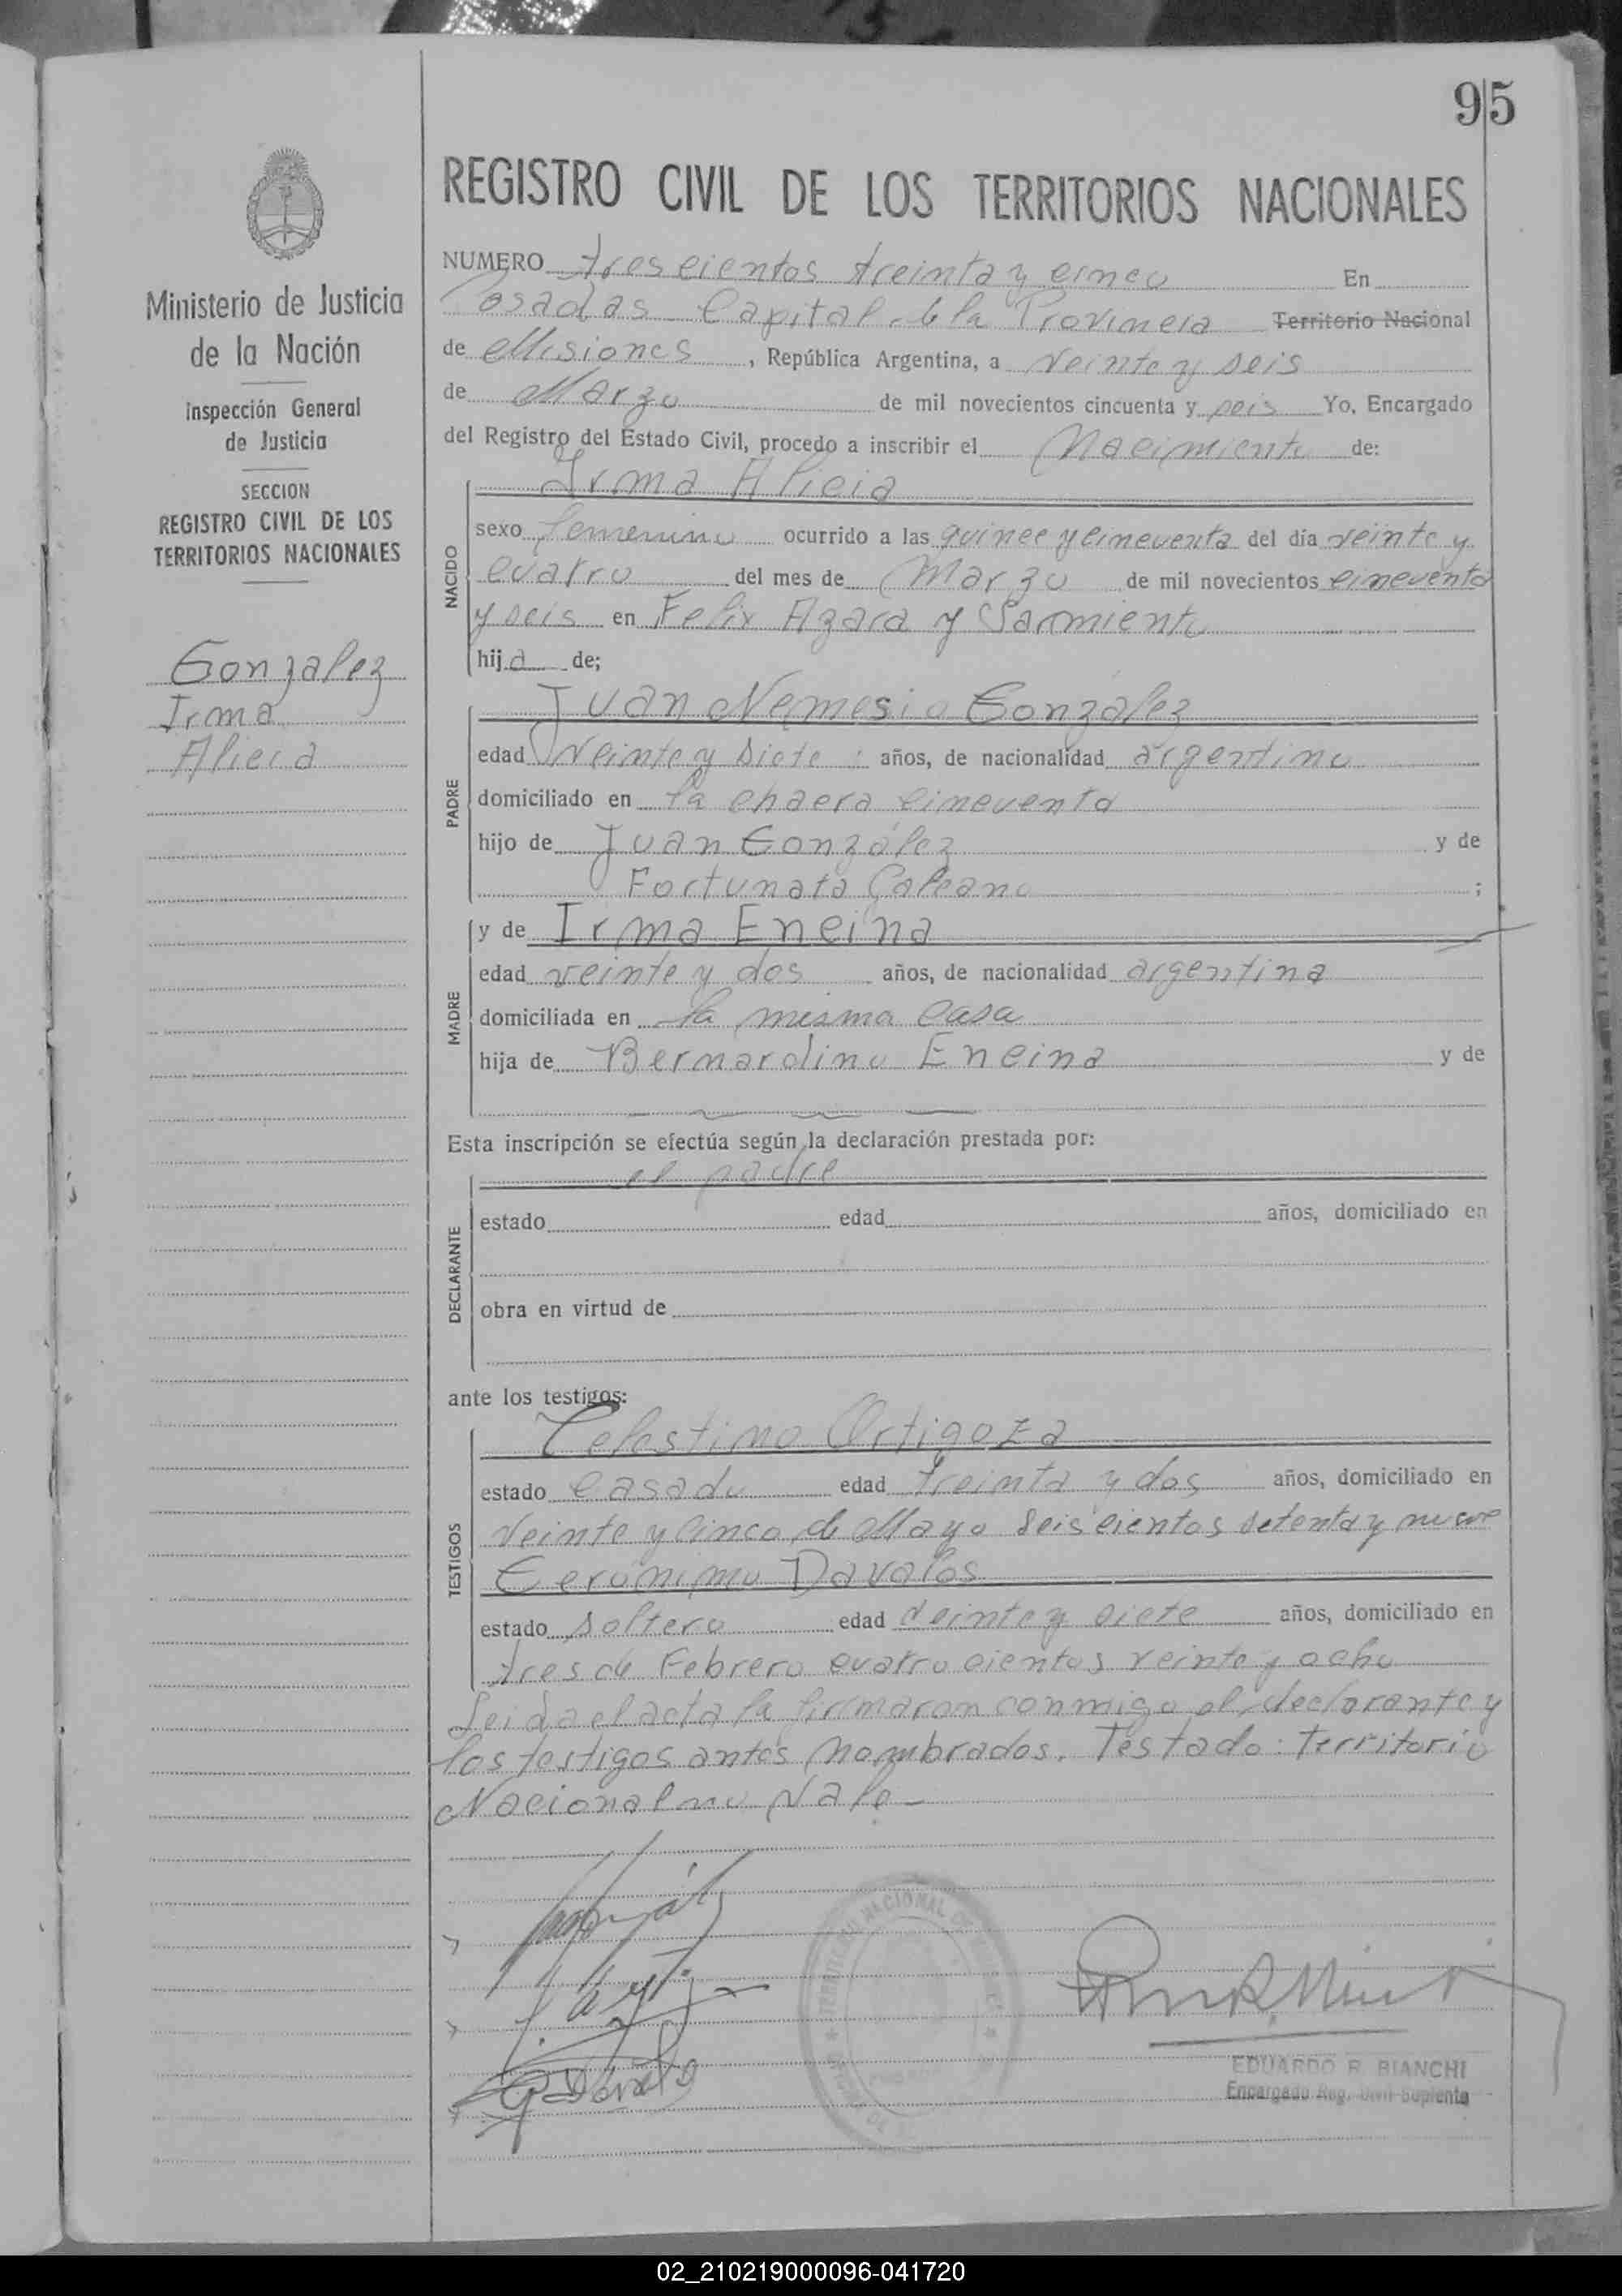 95
REGISTRO CIVIL DE LOS TERRITORIOS NACIONALES
Ministerio de Justicia
de la Nación
Inspección General
de Justicia
SECCION
REGISTRO CIVIL DE LOS
TERRITORIOS NACIONALES
Gonzalez
Irma
Alicia
NUMERO trescientos treinta y cinco En
Posadas Capital de la Provincia Territorio Nacional
de Misiones, República Argentina, a veinte y seis
de Marzo de mil novecientos cincuenta y seis Yo, Encargado
del Registro del Estado Civil, procedo a inscribir el Nacimiento de:
NACIDO
Irma Alicia
sexo femenino ocurrido a las quince y cincuenta del día veinte y
cuatro del mes de Marzo de mil novecientos cincuenta
y seis en Felix Azara y Sarmiento
hija de;
PADRE
Juan Nemesio Gonzalez
edad veinte y siete años, de nacionalidad argentino
domiciliado en la chacra cincuenta
hijo de Juan González y de
Fortunata Galeano ;
MADRE
y de Irma Encina
edad veinte y dos años, de nacionalidad argentina
domiciliada en la misma casa
hija de Bernardino Encina y de
Esta inscripción se efectúa según la declaración prestada por:
DECLARANTE
el padre
estado edad años, domiciliado en
obra en virtud de
ante los testigos:
TESTIGOS
Celestino Ortigoza
estado casado edad treinta y dos años, domiciliado en
veinte y cinco de Mayo seiscientos setenta y nueve
Gerónimo Davalos
estado soltero edad veinte y siete años, domiciliado en
tres de Febrero cuatrocientos veinte y ocho
Leida el acta la firmaron conmigo el declarante y
los testigos antes nombrados. Testado: Territorio
Nacional no vale
EDUARDO R. BIANCHI
Encargado Reg. Civil Suplente
02_210219000096-041720